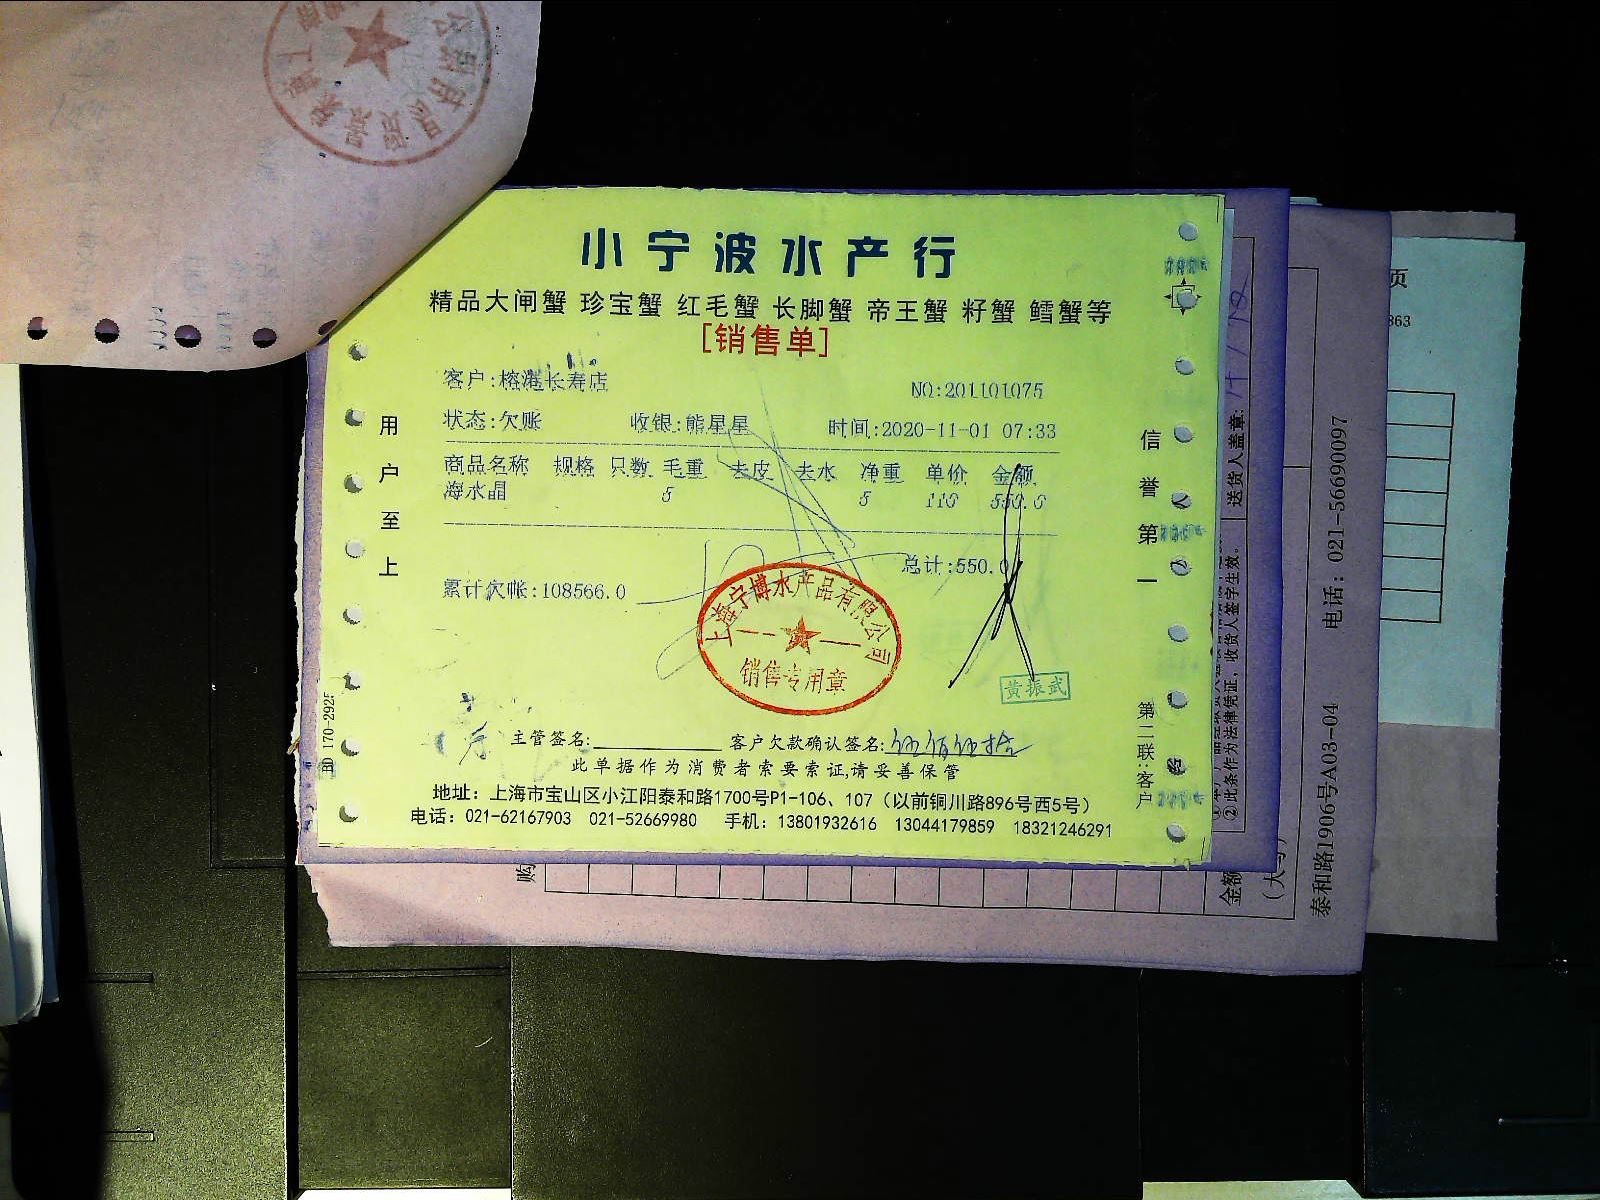 小宁波水产行
精品大闸蟹 珍宝蟹 红毛蟹 长脚蟹 帝王蟹 籽蟹 鳕蟹等
[销售单]
客户:榕港长寿店
NO:201101075
状态:欠账 收银:熊星星 时间:2020-11-01 07:33
商品名称 规格 只数 毛重 去皮 去水 净重 单价 金额
海水晶 5 5 110 550.0
总计:550.0
累计欠帐:108566.0
上海宁博水产品有限公司
销售专用章
黄振武
主管签名: 客户欠款确认签名:伍佰伍拾
此单据作为消费者索要索证,请妥善保管
地址：上海市宝山区小江阳泰和路1700号P1-106、107（以前铜川路896号西5号）
电话：021-62167903 021-52669980 手机：13801932616 13044179859 18321246291
用户至上
信誉第一
第二联:客户
170-2925
送货人盖章:
②此条作为法律凭证，收货人签字生效。
购
金额
泰和路1906号A03-04 电话：021-56690097
页
863